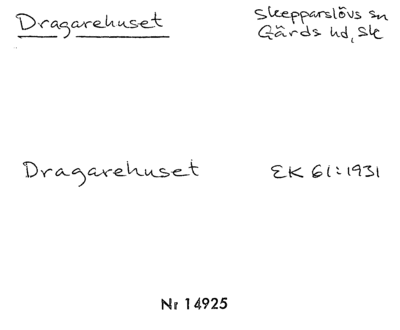 Dragarehuset
Skepparslövs sn
Gärds hd, Sk
Dragarehuset
EK 61:1931
Nr 14925